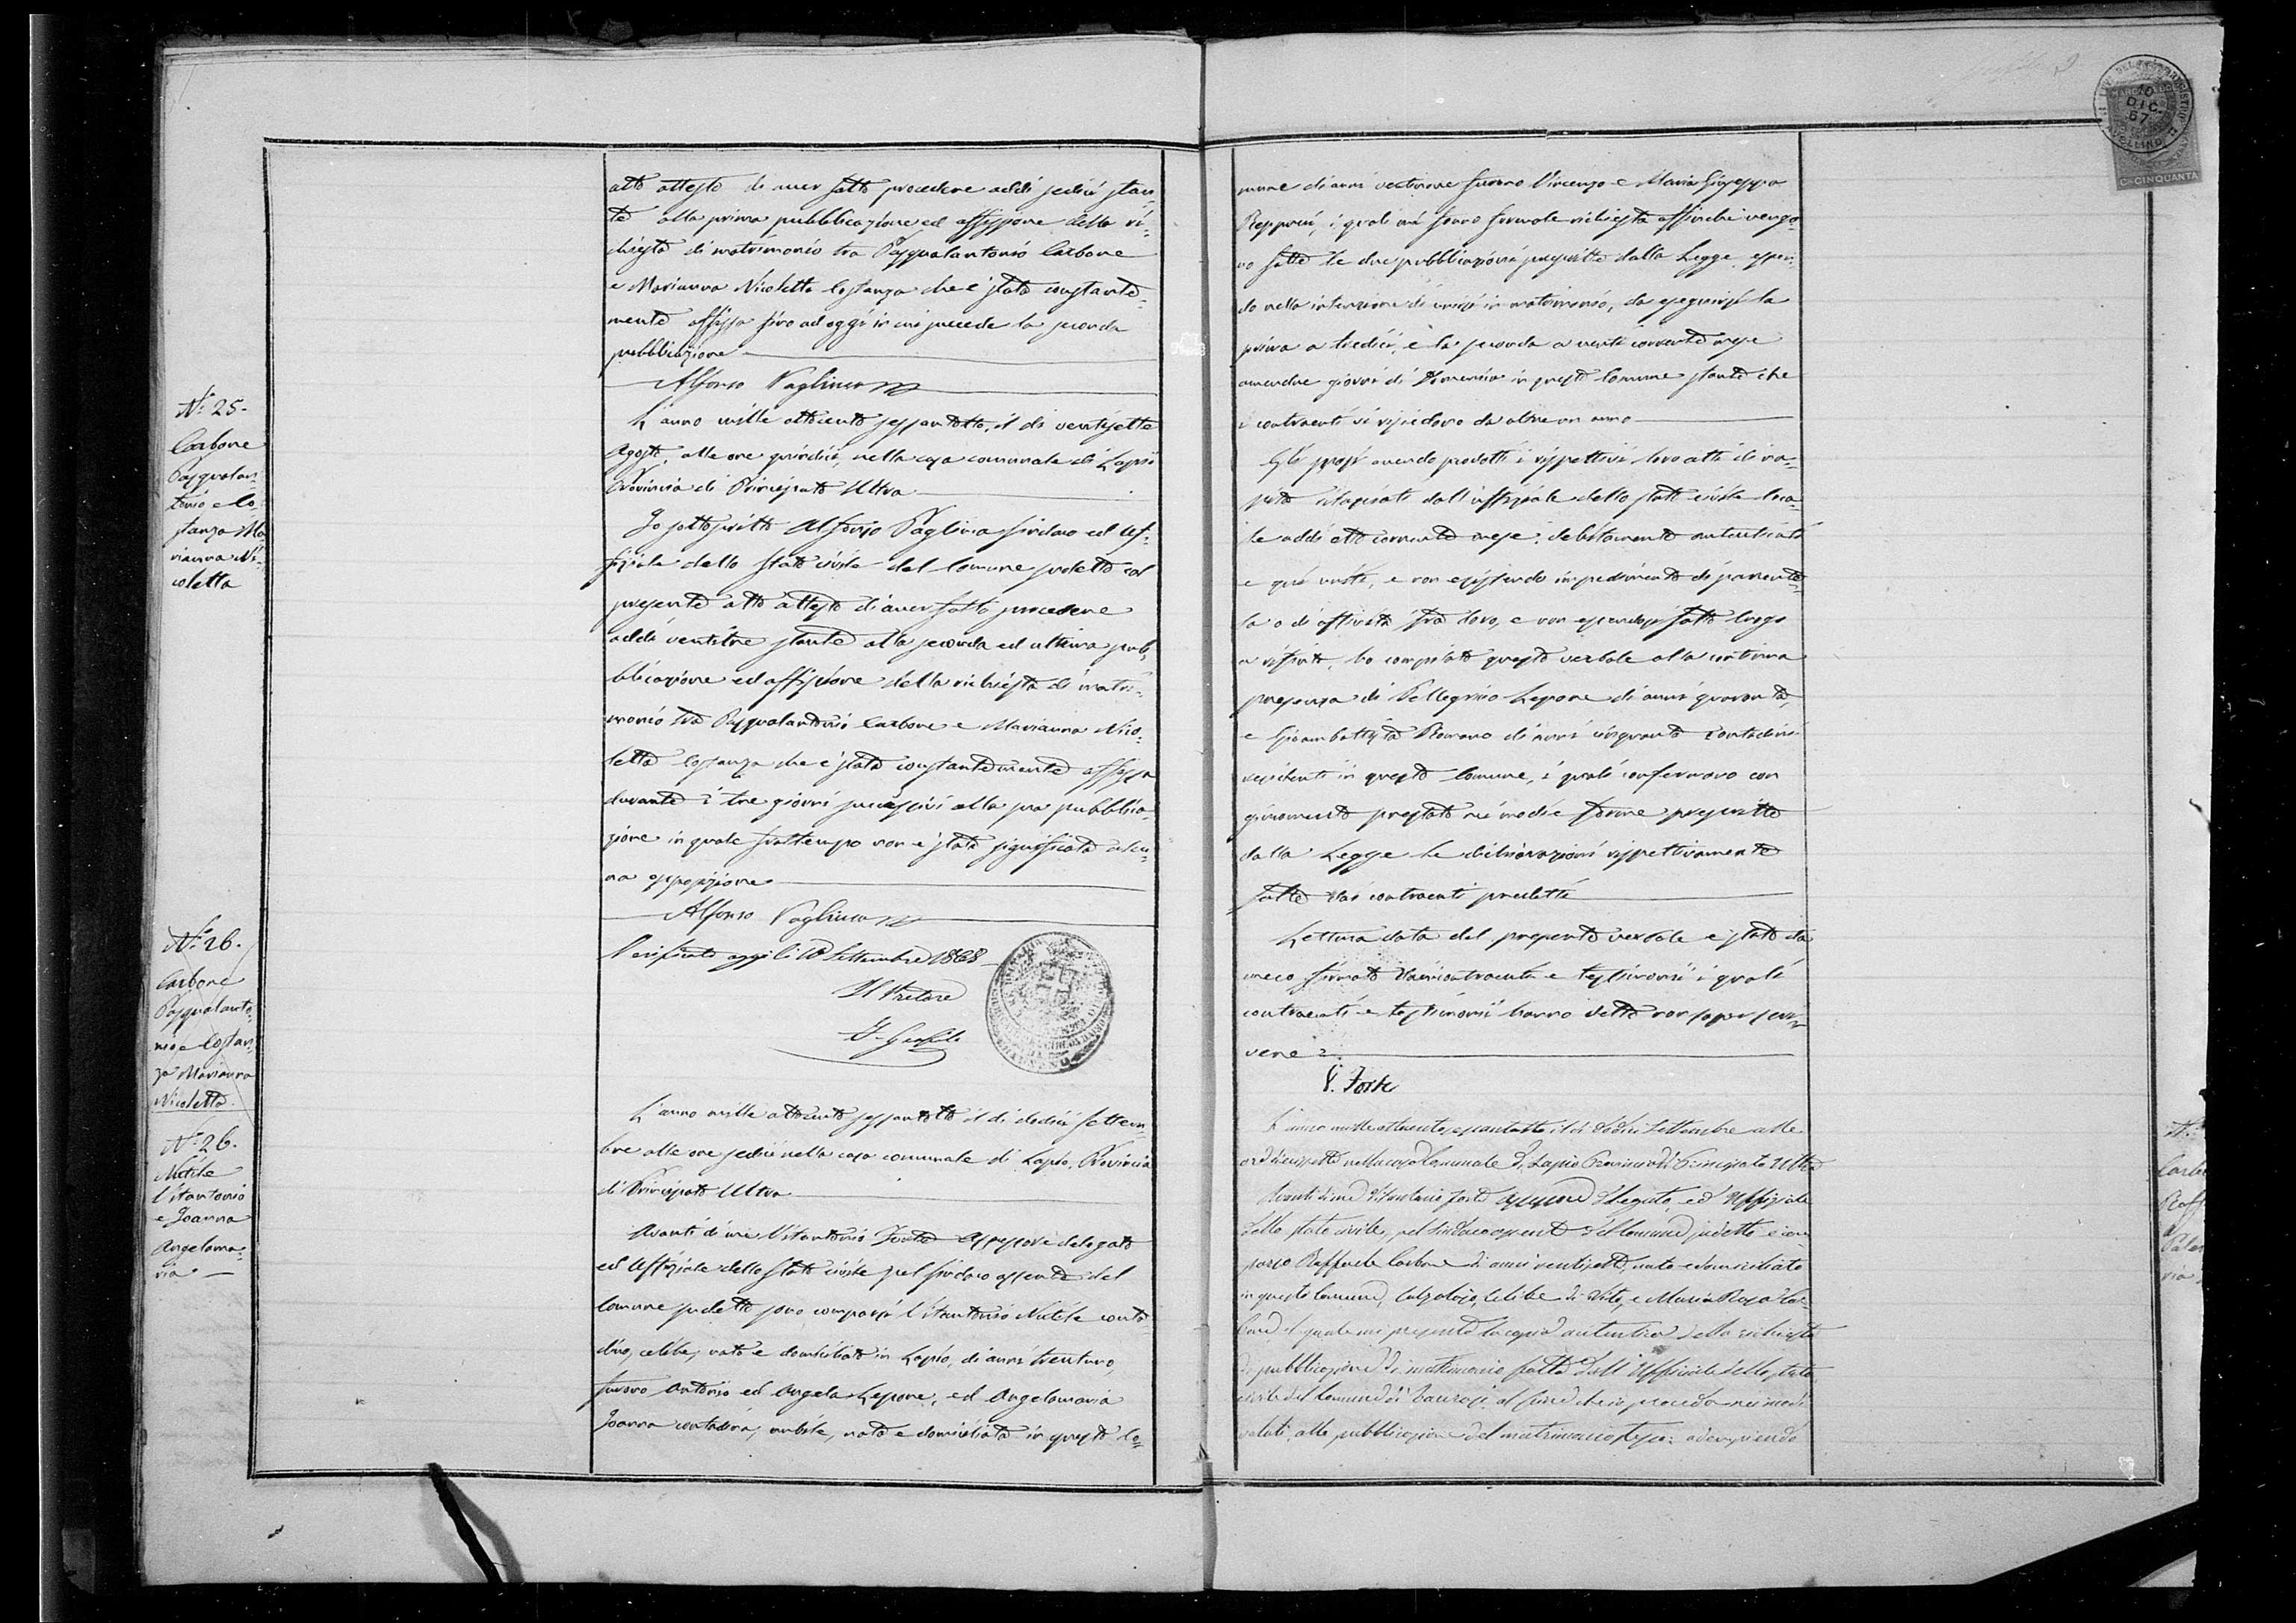 N.° 25.
Carbone
Pasqualan=
tonio e Co=
stanza Ma=
rianna Ni=
coletta
N.° 26.
Carbone
Pasqualanto=
nio e Costan=
za Marianna
Nicoletta
N.° 26.
Vitantonio
e Joanna
Angelama=
ria
atto attesto di aver fatto procedere addì sedici stan=
te alla prima pubblicazione ed affissione della ri=
chiesta di matrimonio tra Pasqualantonio Carbone
e Marianna Nicoletta Costanza che è stata constante=
mente affissa sino ad oggi in cui procede la seconda
pubblicazione
Alfonso Vagliviello
L'anno mille ottocento sessantotto, il dì ventisette
Agosto, alle ore quindici, nella casa comunale di Lapio
Provincia di Principato Ultra
Io sottoscritto Alfonso sindaco ed Uf=
fiziale dello stato civile del Comune sudetto col
presente atto attesto di aver fatto procedere
addì ventitre stante alla seconda ed ultima pub=
blicazione ed affissione della richiesta di matri=
monio tra Pasqualantonio Carbone e Marianna Nico=
letta Costanza che è stata constantemente affissa
durante i tre giorni successivi alla sua pubblica=
zione in quale frattempo non è stata significata alcu=
na opposizione
Alfonso
Verificato oggi li 10 Settembre 1868
Il Pretore
L'anno mille ottocento sessantotto il dì dodici Settem=
bre alle ore sedici nella casa comunale di Lapio, Provincia
di Principato Ultra
Avanti di me Vitantonio Forte Assessore delegato
ed Uffiziale dello stato civile pel sindaco assente del
Comune sudetto sono comparsi Vitantonio conta=
dino, celibe, nato e domiciliato in Lapio, di anni trentuno,
furono Antonio ed Angela Lepore, ed Angelamaria
Joanna contadina, nubile, nata e domiciliata in questo Co=
10
DIC.
67
C. CINQUANTA
mune di anni ventinove furono Vincenzo e Maria Giuseppa
i quali mi fanno formale richiesta affinché venga=
no fatte le due pubblicazioni prescritte dalla Legge, essen=
do nella intenzione di unirsi in matrimonio, da eseguirsi la
prima a tredici, e la seconda a venti corrente mese
amendue giorni di Domenica in questo Comune stante che
i contraenti vi risiedono da oltre un anno
Gli sposi avendo prodotti i rispettivi loro atti di na=
scita rilasciati dall'uffiziale dello stato civile loca=
le addì otto corrente mese, debitamente autenticati
e qui uniti, e non esistendo impedimento di parente=
la o di affinità fra loro, e non essendosi fatto luogo
a rifiuto, ho compilato questo verbale alla continua
presenza di Pellegrino Lepore di anni quaranta,
e Giambattista Romano di anni cinquanta contadini
residenti in questo Comune, i quali confermano con
giuramento prestato nei modi e forme prescritte
dalla Legge le dichiarazioni rispettivamente
fatte dai contraenti predetti
Lettura data del presente verbale è stato da
meco firmato contraenti e testimonii i quali
contraenti e testimonii hanno detto non saper scri=
vere
V. Forte
L'anno mille ottocento sessantotto il dì dodici Settembre alle
ore diecissette nella casa Comunale di Lapio Provincia di Principato Ultra
Avanti di me Vitantonio Forte Assessore delegato, ed Uffiziale
dello stato civile, pel Sindaco assente del Comune sudetto è com=
parso Raffaele Carbone di anni ventisette, nato e domiciliato
in questo Comune, Calzolajo, Celibe di Vito, e Maria Rosa Car=
bone, il quale mi presenta la copia autentica della richiesta
di pubblicazione di matrimonio fatta dall'Uffiziale dello stato
civile del Comune di Taurasi, al fine che io proceda nei modi
voluti, alla pubblicazione del matrimonio stesso: adempiendo
N.°
Carb
Raff